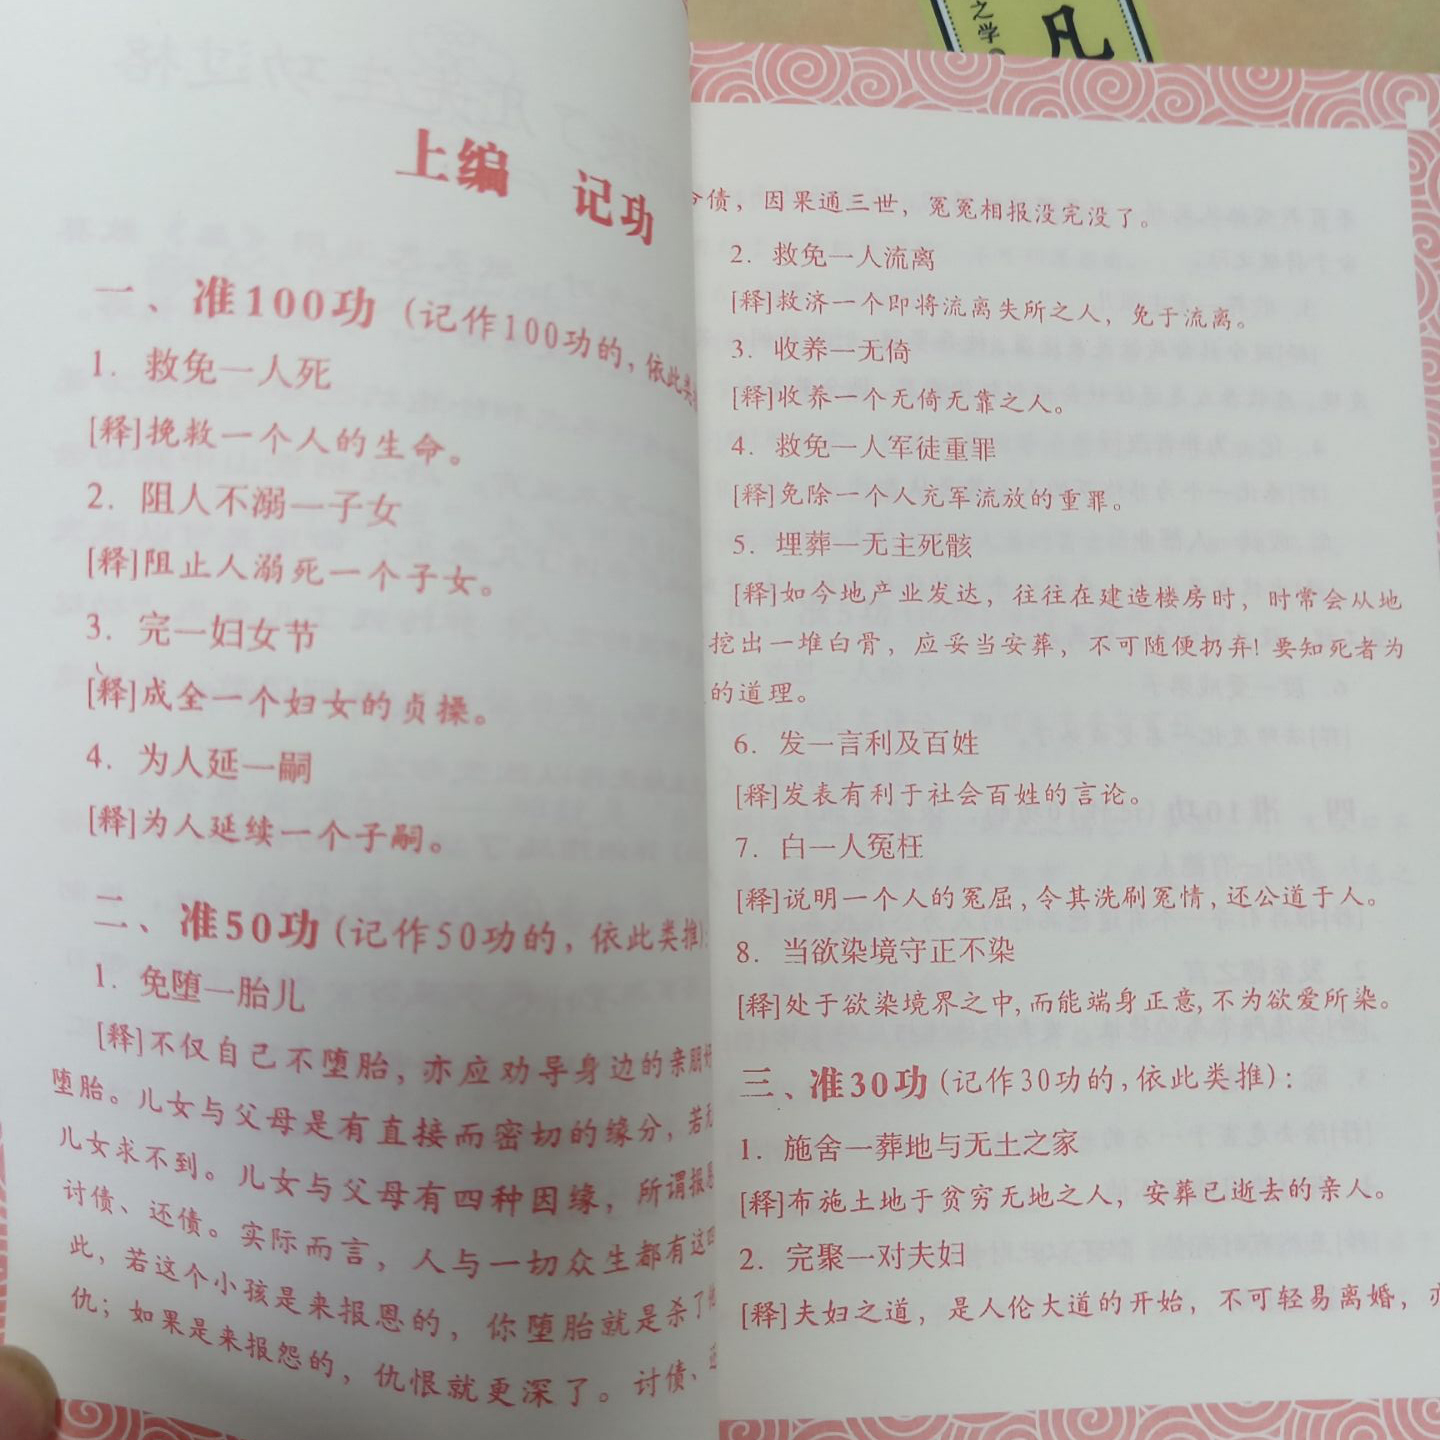 之学
凡
上编 记功
一、准100功（记作100功的，依此类
1. 救免一人死
[释]挽救一个人的生命。
2. 阻人不溺一子女
[释]阻止人溺死一个子女。
3. 完一妇女节
[释]成全一个妇女的贞操。
4. 为人延一嗣
[释]为人延续一个子嗣。
二、准50功(记作50功的，依此类推):
1. 免堕一胎儿
[释]不仅自己不堕胎，亦应劝导身边的亲朋
堕胎。儿女与父母是有直接而密切的缘分，若
儿女求不到。儿女与父母有四种因缘，所谓报
讨债、还债。实际而言，人与一切众生都有这
此，若这个小孩是来报恩的，你堕胎就是杀了
仇；如果是来报怨的，仇恨就更深了。讨债、
债，因果通三世，冤冤相报没完没了。
2. 救免一人流离
[释]救济一个即将流离失所之人，免于流离。
3. 收养一无倚
[释]收养一个无倚无靠之人。
4. 救免一人军徒重罪
[释]免除一个人充军流放的重罪。
5. 埋葬一无主死骸
[释]如今地产业发达，往往在建造楼房时，时常会从地
挖出一堆白骨，应妥当安葬，不可随便扔弃！要知死者为
的道理。
6. 发一言利及百姓
[释]发表有利于社会百姓的言论。
7. 白一人冤枉
[释]说明一个人的冤屈，令其洗刷冤情，还公道于人。
8. 当欲染境守正不染
[释]处于欲染境界之中，而能端身正意，不为欲爱所染。
三、准30功(记作30功的，依此类推)：
1. 施舍一葬地与无土之家
[释]布施土地于贫穷无地之人，安葬已逝去的亲人。
2. 完聚一对夫妇
[释]夫妇之道，是人伦大道的开始，不可轻易离婚，